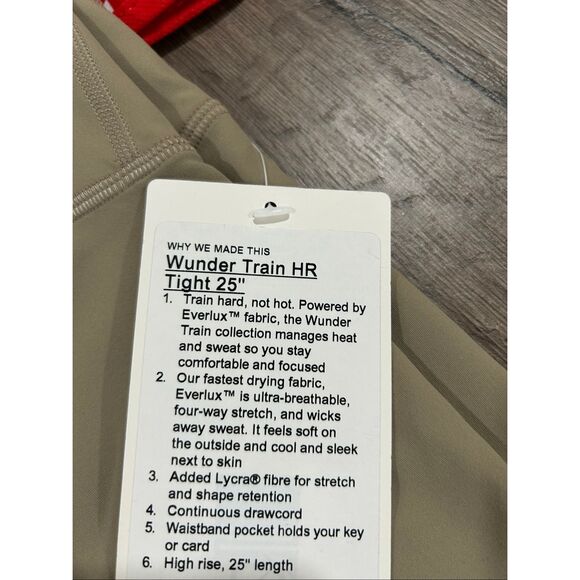 WHY WE MADE THIS
Wunder Train HR
Tight 25"
1. Train hard, not hot. Powered by
Everlux™ fabric, the Wunder
Train collection manages heat
and sweat so you stay
comfortable and focused
2. Our fastest drying fabric,
Everlux™ is ultra-breathable,
four-way stretch, and wicks
away sweat. It feels soft on
the outside and cool and sleek
next to skin
3. Added Lycra® fibre for stretch
and shape retention
4. Continuous drawcord
5. Waistband pocket holds your key
or card
6. High rise, 25" length